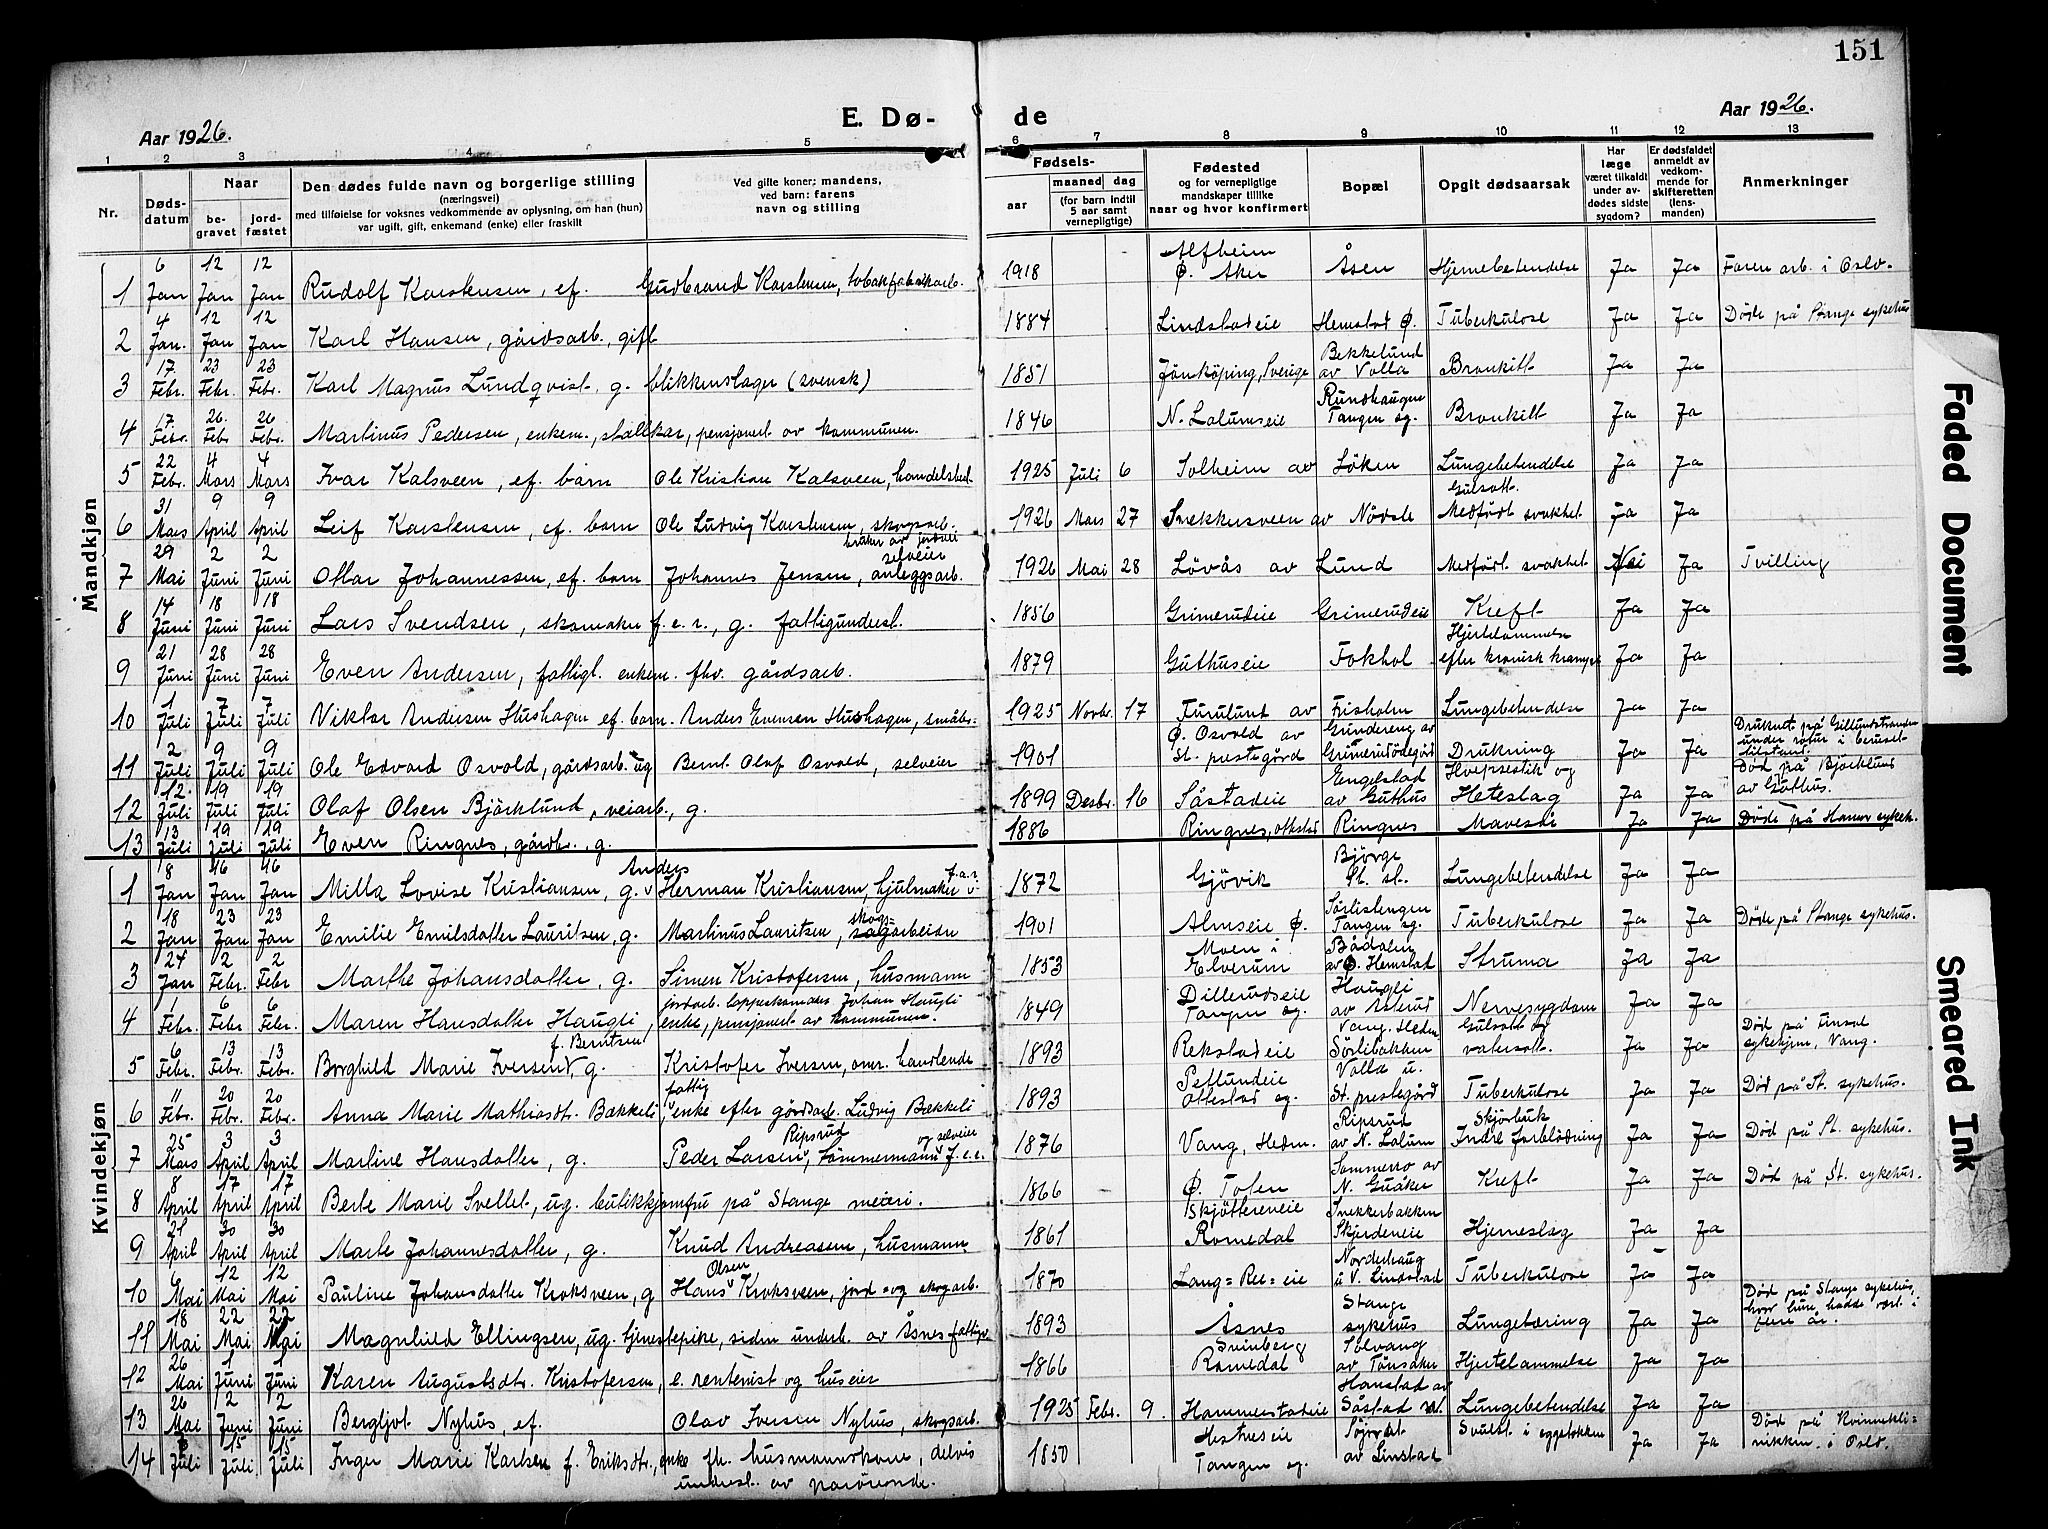 151
E. Dø- de
Aar 1926. Aar 1926.
1 2 3 4 5 6 7 8 9 10 11 12 13
Nr. Dødsdatum Naar begravet jordfæstet
Den dødes fulde navn og borgerlige stilling
(næringsvei)
med tilføielse for voksnes vedkommende av oplysning, om han (hun)
var ugift, gift, enkemand (enke) eller fraskilt
Ved gifte koner; mandens,
ved barn: farens
navn og stilling
Fødsels-
aar maaned dag
(for barn indtil
5 aar samt
vernepligtige)
Fødested
og for vernepligtige
mandskaper tillike
naar og hvor konfirmert
Bopæl
Opgit dødsaarsak
Har
læge
været tilkaldt
under av-
dødes sidste
sygdom?
Er dødsfaldet
anmeldt av
vedkom-
mende for
skifteretten
(lens-
manden)
Anmerkninger
Mandkjøn
1 6 Jan 12 Jan 12 Jan Rudolf Karstensen, ef. Gudbrand Karstensen, tobakfabrikarb. 1918 Alfheim Ø. Aker Åsen Hjernebetendelse Ja Ja Faren arb. i Oslo.
2 4 Jan. 12 Jan 12 Jan Karl Hansen, gårdsarb., gift 1884 Lindstadeie Hemstad Ø. Tuberkulose Ja Ja Døde på Stange sykehus
3 17 Febr. 23 Febr. 23 Febr. Karl Magnus Lundqvist, g. blikkenslager (svensk) 1851 Jönköping, Sverige Bekkelund av Volla Bronkitt Ja Ja
4 17. Febr. 26. Febr 26 Febr. Martinus Pedersen, enkem., stallkar, pensjonert av kommunen. 1846 N. Lalumseie Rundhaugen Tangen sg. Bronkitt Ja Ja
5 22 Febr. 4 Mars 4 Mars Ivar Kalsveen, ef. barn Ole Kristian Kalsveen, handelsbet. 1925 Juli 6 Solheim av Løken Lungebetendelse Ja Ja
6 31 Mars 9 April 9 April Leif Karstensen, ef. barn Ole Ludvig Karstensen, skogsarb. bruker av jordvei 1926 Mars 27 Snekkersveen av Nødste Gulsott. Medfødt svakhet Ja Ja
7 29 Mai 2 Juni 2 Juni Ottar Johannessen, ef. barn Johannes Jensen, selveier anleggsarb. 1926 Mai 28 Løvås av Lund Medfødt svakhet Nei Ja Tvilling
8 14 Juni 18 Juni 18 Juni Lars Svendsen, skomaker f.e.r., g. fattigunderst. 1856 Grimerudeie Grimerudeie Kreft Ja Ja
9 21 Juni 28 Juni 28 Juni Even Andersen, fattigl. enkem. fhv. gårdsarb. 1879 Guthuseie Fokhol Hjertelammelse efter kronisk krampe Ja Ja
10 1 Juli 7 Juli 7 Juli Viktor Andersen Hushagen ef. barn. Anders Evensen Hushagen, småbr. 1925 Novbr. 17 Furulund av Frisholm Lungebetendelse Ja Ja
11 2 Juli 9 Juli 9 Juli Ole Edvard Osvold, gårdsarb. ug Bernt Olaf Osvold, selveier 1901 Ø. Osvold av St. prestegård Grundereng av Grimerudødegård Drukning Ja Ja Druknet på Gillundstranden under rotur i beruset tilstand.
12 12. Juli 19 Juli 19 Juli Olaf Olsen Bjørklund, veiarb., g. 1899 Desbr. 16 Såstadeie Engelstad av Guthus Hvepsestik og Heteslag Ja Ja Død på Bjørklund av Guthus.
13 13 Juli 19 Juli 19 Juli Even Ringnes, gårdbr., g. 1886 Ringnes, Ottestad Ringnes Mavesår Ja Ja Døde på Hamar sykeh.
Kvindekjøn
1 8 Jan 16 Jan 16 Jan Milla Lovise Kristiansen, g. Anders v Herman Kristiansen, hjulmaker f.a.r. 1872 Gjøvik Bjørge St. st. Lungebetendelse Ja Ja
2 18 Jan 23 Jan 23 Jan Emilie Emilsdatter Lauritsen, g. Martinus Lauritsen, skogs- sagarbeider 1901 Almseie Ø. Sørlistengen Tangen sg. Tuberkulose Ja Ja Døde på Stange sykehus.
3 24 Jan 2 Febr. 2 Febr Marthe Johansdatter, g. Simen Kristofersen, husmann 1853 Moen i Elverum Bådalen av Ø. Hemstad Struma Ja Ja
4 1 Febr. 6 Febr 6 Febr. Maren Hansdatter Haugli, jordarb. Johan Haugli enke, pensjonert av kommunen. 1849 Dillerudseie Tangen sg. Haugli av Asterud Nervesygdom Ja Ja
5 6 Febr. 13 Febr. 13 Febr. Borghild Marie Iversen, f. Berntsen g. Kristofer Iversen, omr. handlende 1893 Rekstadeie Vang, Hedm. Sørlibakken Gulsott og vatersott. Ja Ja Død på Finsal sykehjem, Vang.
6 11 Febr. 20 Febr. 20 Febr. Anna Marie Mathiasdtr. Bækkeli, fattig enke efter gårdsarb. Ludvig Bækkeli 1893 Petlundeie Ottestad sg. Volla u. St. prestegård Tuberkulose Ja Ja Død på St. sykehus.
7 25 Mars 3 April 3 April Martine Hansdatter, g. Peder Larsen Ripsrud, tømmermann og selveier f.e.r. 1876 Vang, Hedm. Ripsrud av N. Lalum Skjørbuk Indre forblødning Ja Ja Død på St. sykehus.
8 8 April 17 April 17 April Berte Marie Svellet, ug. butikkjomfru på Stange meieri. 1866 Ø. Toten Sommerro av N. Guåker Kreft Ja Ja Død på St. sykehus.
9 21 April 30 April 30 April Marte Johannesdatter, g. Knud Andreasen, husmann 1861 Skjøttereneie Romedal Snekkerbakken Skjerdeneie Hjerneslag Ja Ja
10 9 Mai 12 Mai 12 Mai Pauline Johansdatter Kroksveen, g Hans Olsen Kroksveen, jord- og skogarb. 1870 Lang=Ree=eie Norderhaug u V. Lindstad Tuberkulose Ja Ja
11 18 Mai 22 Mai 22 Mai Magnhild Ellingsen, ug. tjenestepike, siden underh. av Åsnes fattigv. 1893 Åsnes Stange sykehus Lungetæring Ja Ja Død på Stange sykehus, hvor hun hadde vært i flere år.
12 26 Mai 1 Juni 1 Juni Karen Augustsdtr. Kristofersen, e. rentenist og huseier 1866 Svinberg Romedal Solvang av Tønsaker Hjertelammelse Ja Ja
13 26 Mai 2 Juni 2 Juni Bergljot Nyhus, ef. Olav Iversen Nyhus, skogsarb. 1925 Febr. 9. Hammerstadeie Hanstad av Såstad Lungebetendelse Ja Ja
14 Juli 15 Juli 15 Juli Inger Marie Karlsen f. Eriksdtr., enke fh. husmannskone, delvis underst. av pårørende. 1850 Hestneseie Tangen sg. Søjordet av Linstad Svulst i eggstokken Ja Ja Død på Kvinnekli- nikken i Oslo.
Faded Document
Smeared Ink